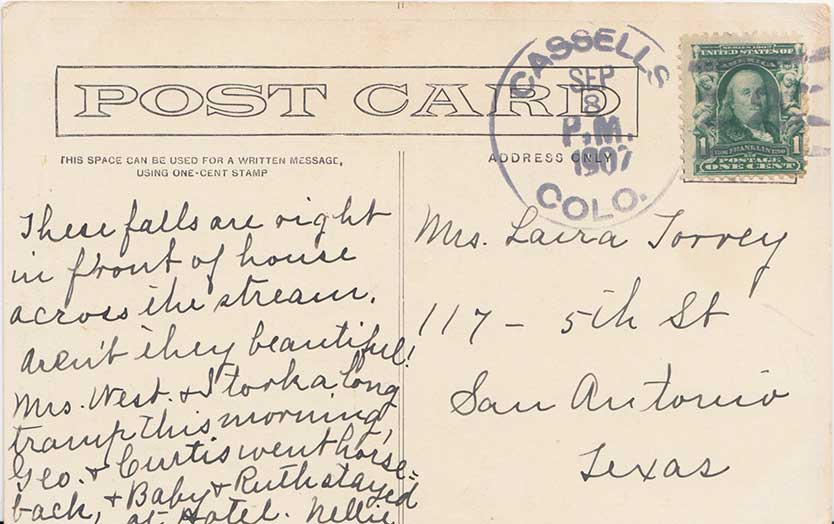 POST CARD
THIS SPACE CAN BE USED FOR A WRITTEN MESSAGE,
USING ONE-CENT STAMP
ADDRESS ONLY
CASSELLS
SEP
8
P.M.
1907
COLO.
SERIES 1902
UNITED STATES OF
AMERICA
1 FRANKLIN 1
POSTAGE
ONE CENT
These falls are right
in front of house
across the stream.
Aren't they beautiful!
Mrs. West. & I took a long
tramp this morning,
Geo. & Curtis went horse=
back, & Baby & Ruth stayed
at Hotel. Nellie.
Mrs. Laira Torrey
117 - 5th St
San Antonio
Texas